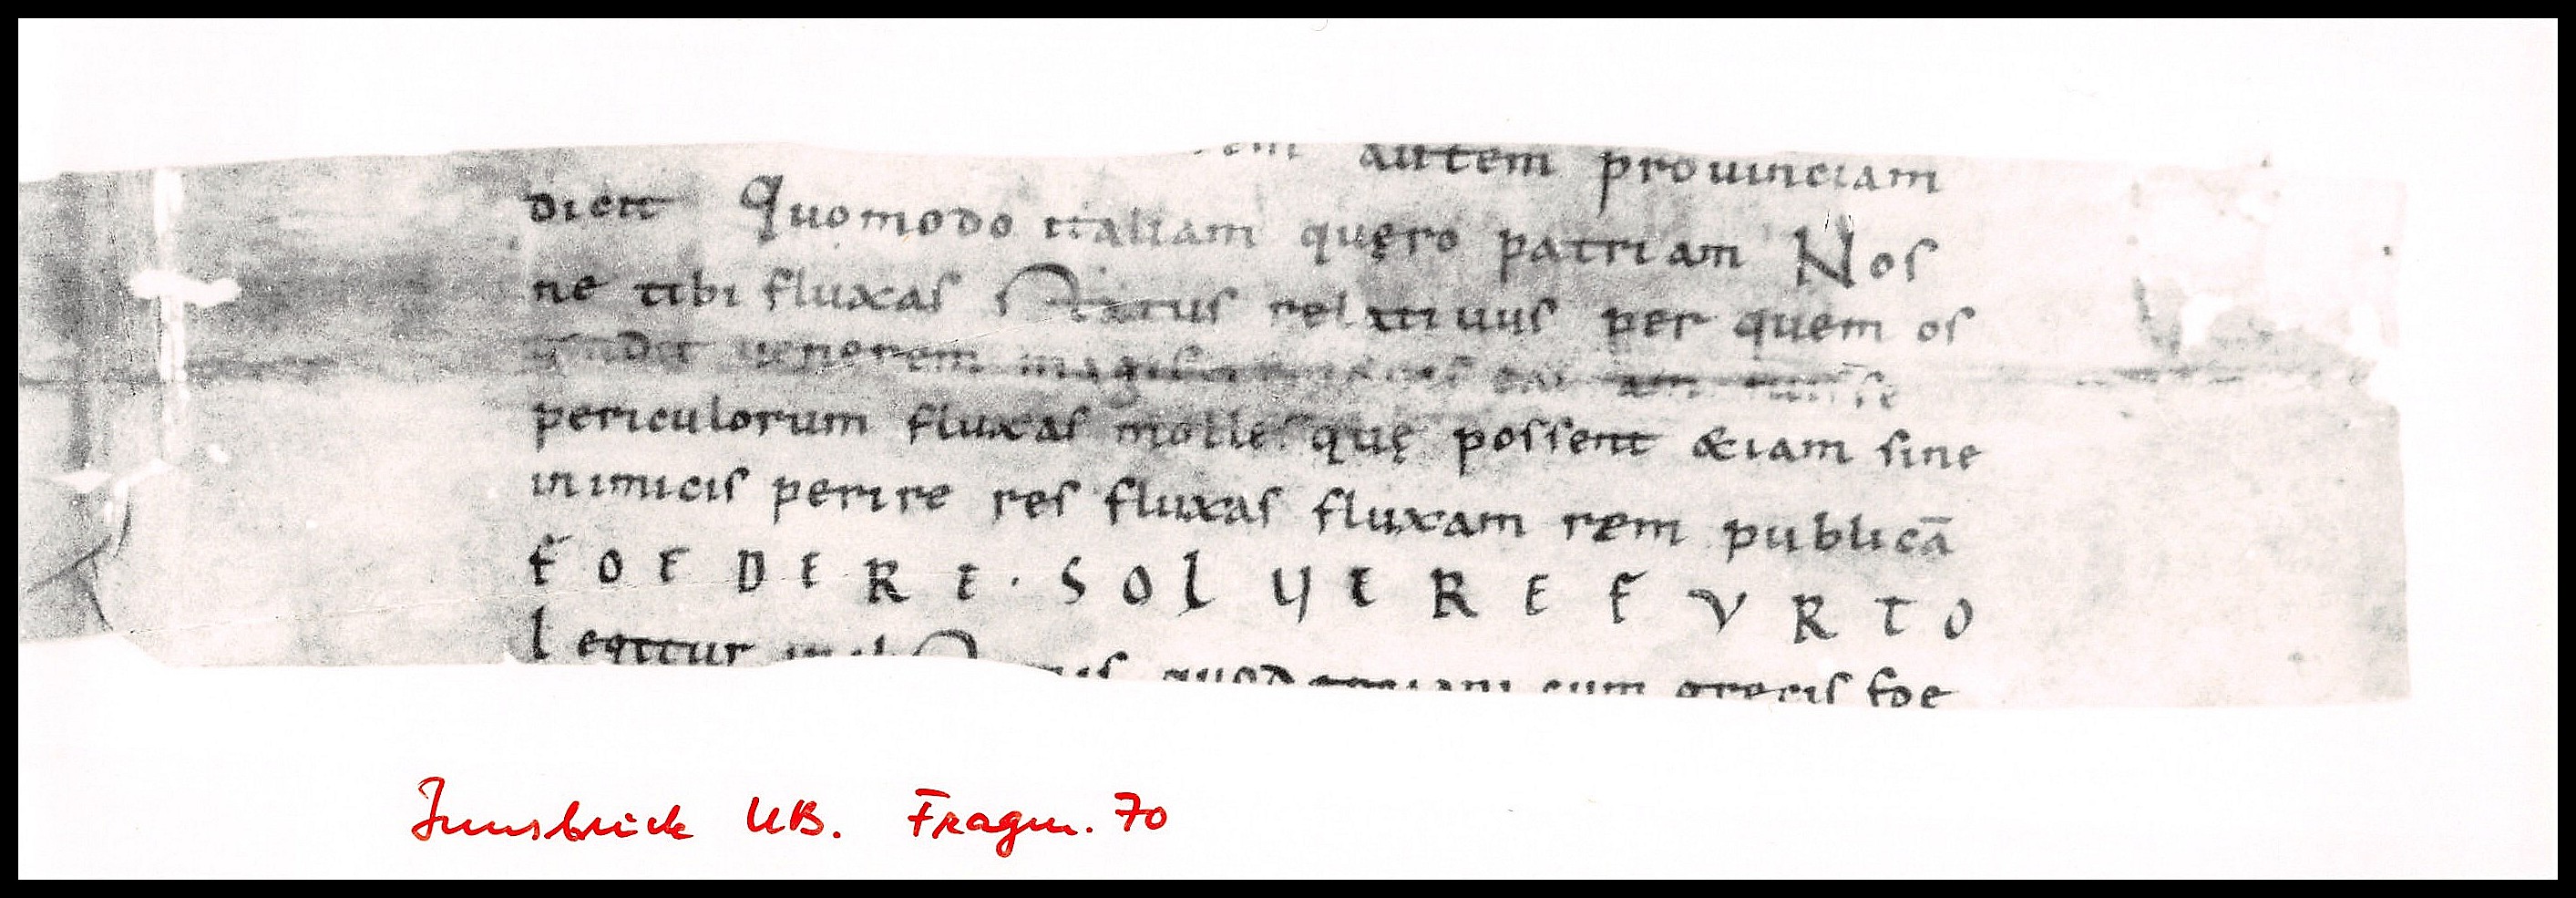 autem prouinciam
dicit Quomodo italiam quęro patriam Nos
ne tibi fluxas Tractus relatiuus per quem os
tendit uenerem magis
periculorum fluxas molles quę possent &iam sine
inimicis perire res fluxas fluxam rem publicā
FOEDERE · SOLUERE FVRTO
Legitur in quodam cum grecis foe
Innsbruck UB. Fragm. 70